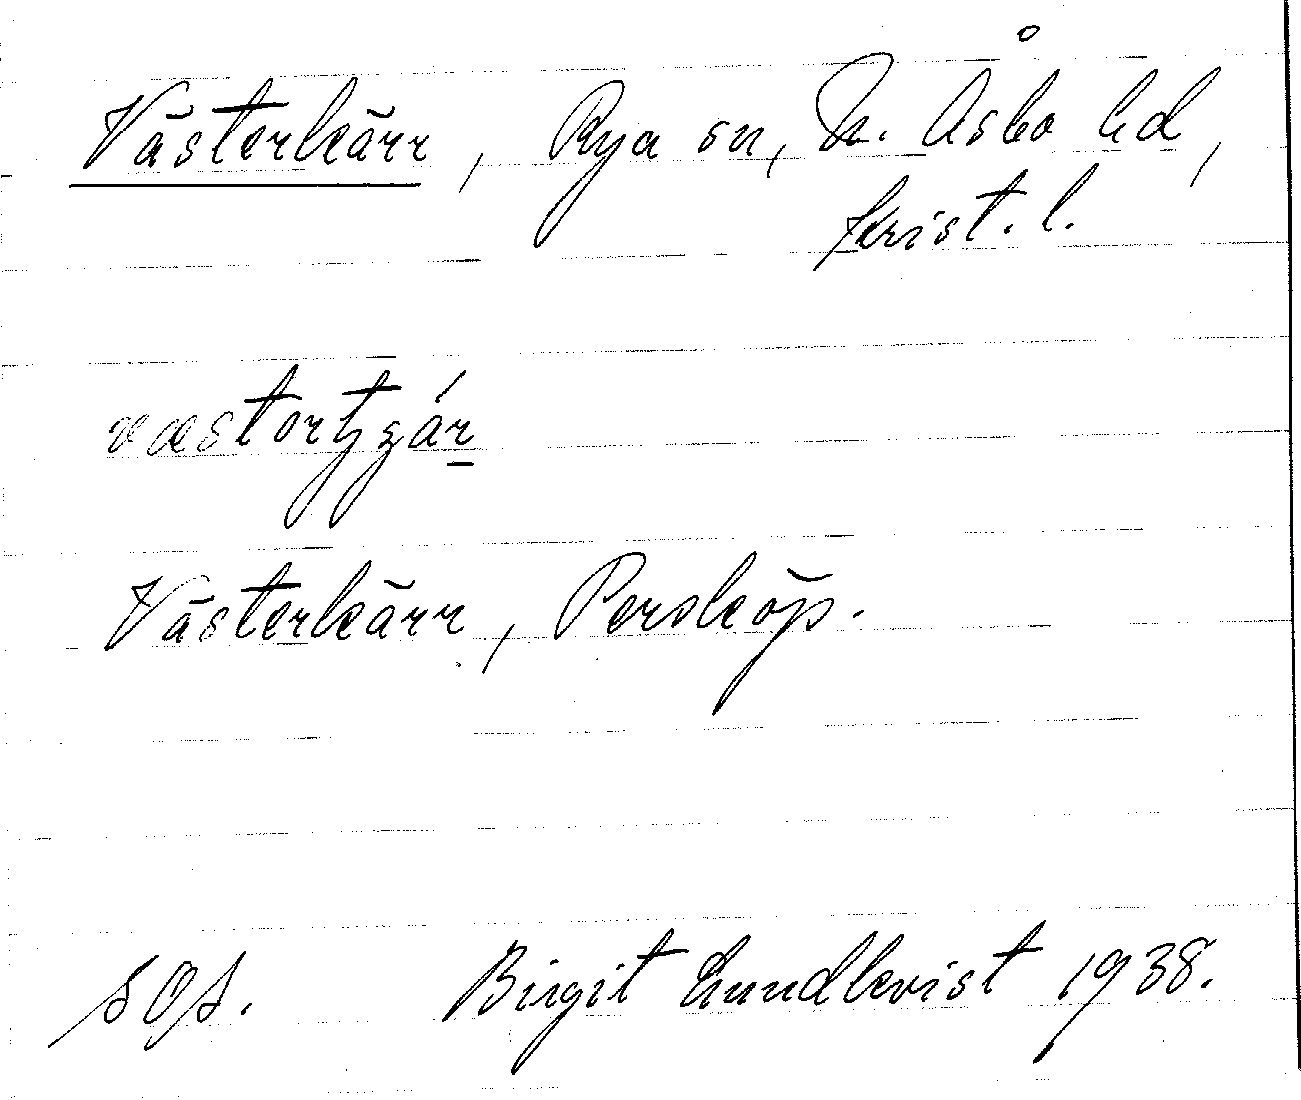 Västerkärr, Rya sn, N. Åsbo hd,
Krist. l.
Västerkärr, Perskӧp.
SOA. Birgit Lundkvist 1938.